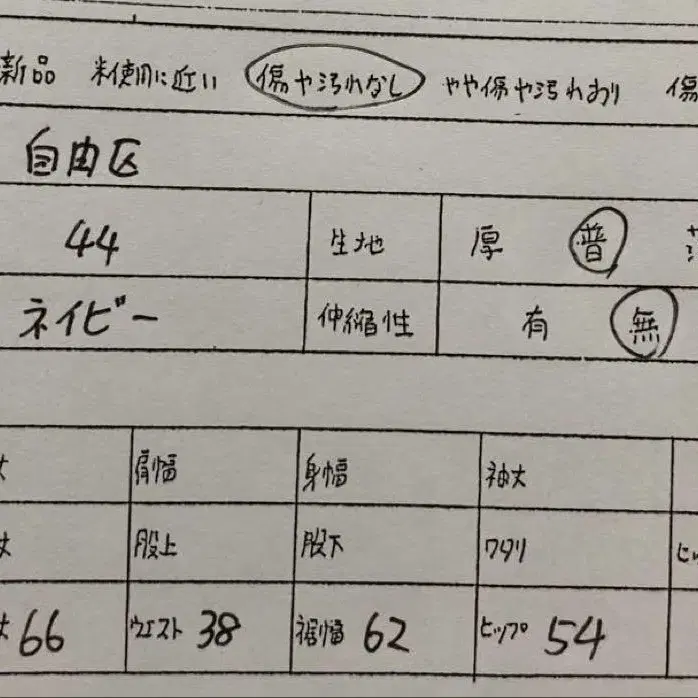 新品 未使用に近い 傷や汚れなし やや傷や汚れあり 傷
自由区
44 生地 厚 普
ネイビー 伸縮性 有 無
丈 肩幅 身幅 袖丈
丈 股上 股下 ワタリ ヒッ
丈 66 ウエスト 38 裾幅 62 ヒップ 54